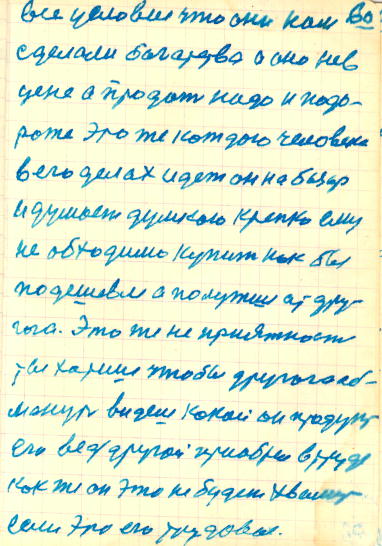 все условие что они нам Во
сделали богатства а оно нев
цене а продат надо и подо-
роже Это же каждого человека
вего делах идет он на базар
и думает думкою крепко ему
не обходимо купит как бы
подешевле а получше ат дру-
гога. Это же не приятност
ты хатиш чтобы другога об-
манут видеш какой он продукт
его ведь другой приобрел втруде
как же он это не будет хвалит
если Это его трудовое.